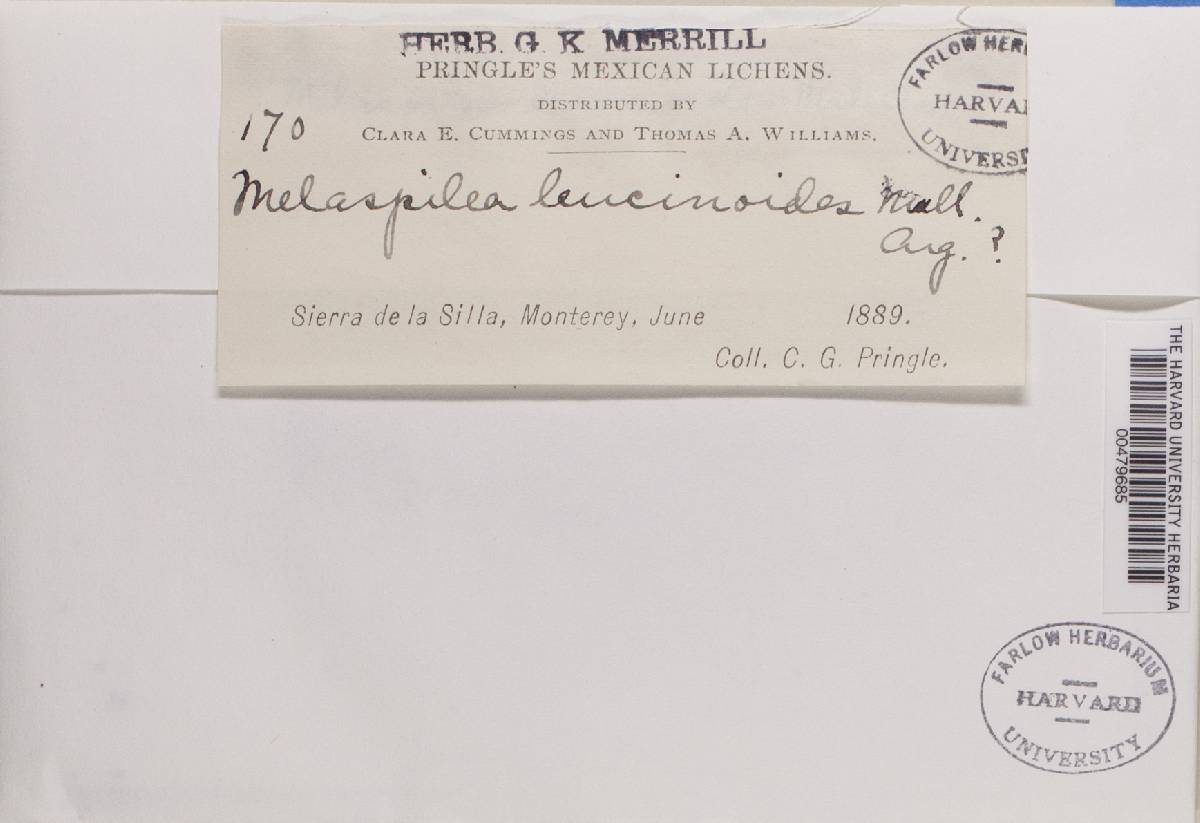 HERB. G. K MERRILL
PRINGLE'S MEXICAN LICHENS.
DISTRIBUTED BY
CLARA E. CUMMINGS AND THOMAS A. WILLIAMS.
170
Melaspilea leucinoides Mull.
Arg. ?
Sierra de la Silla, Monterey, June 1889.
Coll. C. G. Pringle.
FARLOW HER
HARVA
UNIVERSI
THE HARVARD UNIVERSITY HERBARIA
00479685
FARLOW HERBARIUM
HARVARD
UNIVERSITY